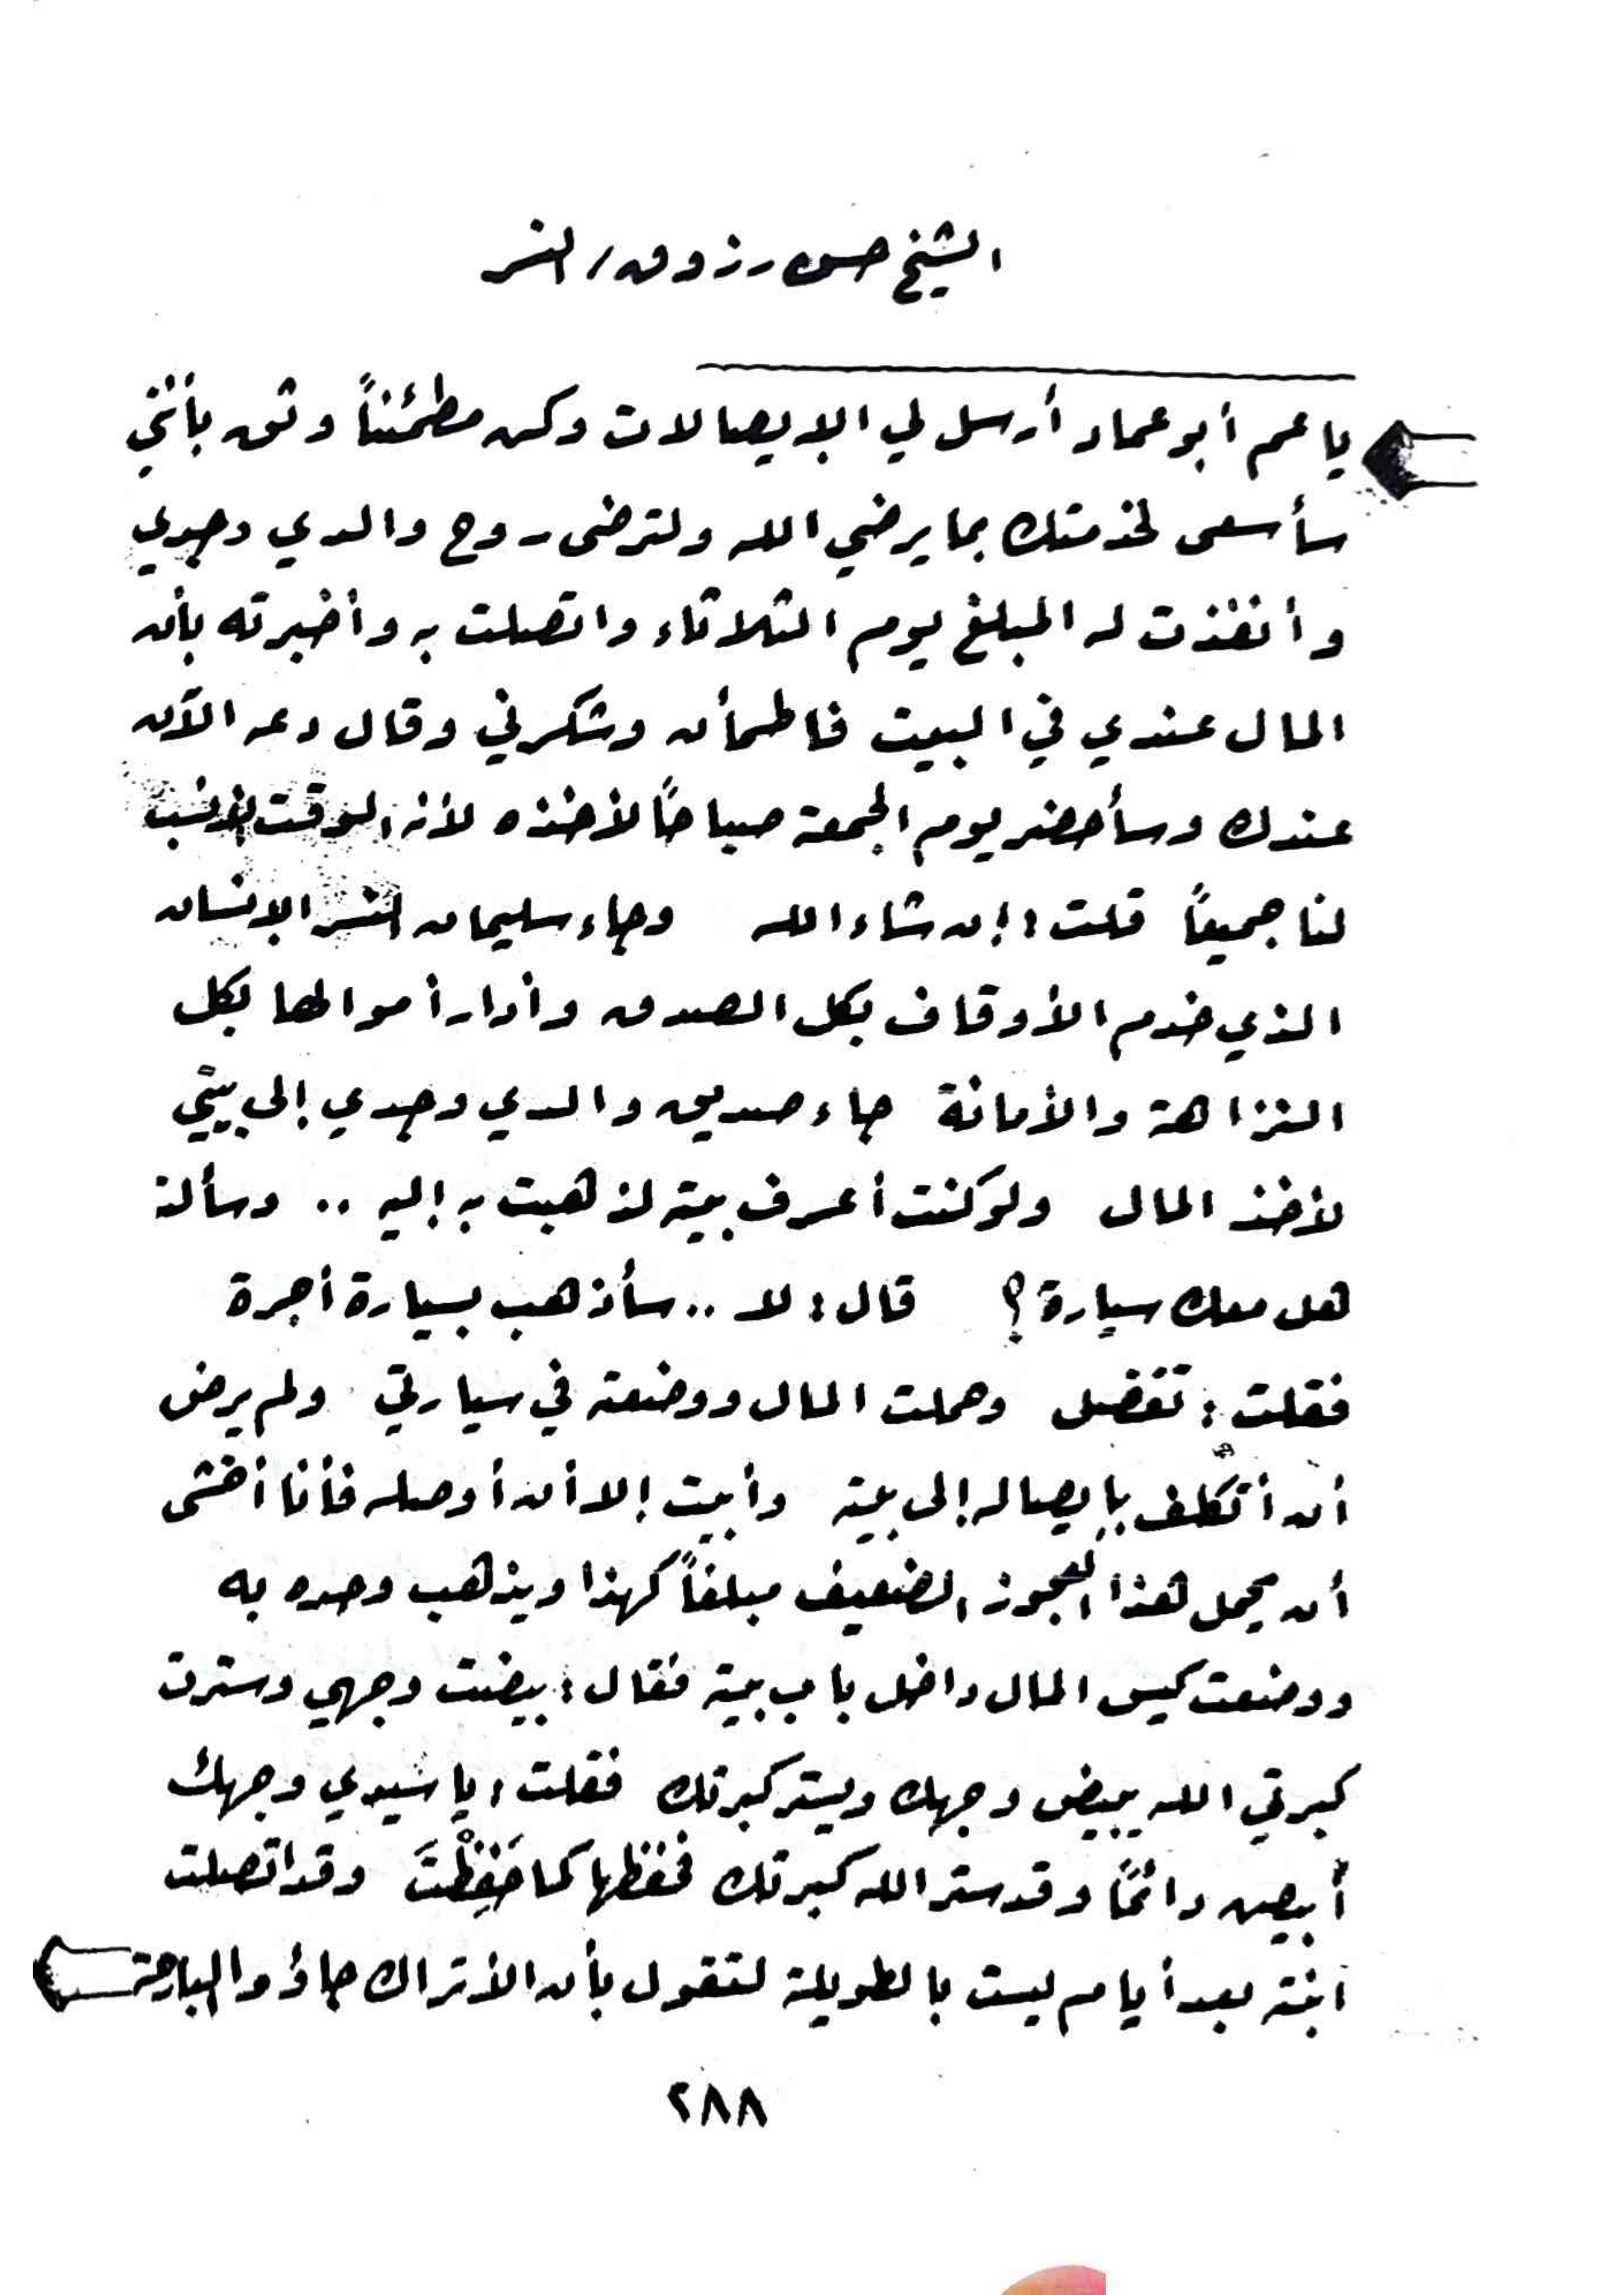 الشيخ حسن رزوق النسر
يا عم أبو عماد أرسل لي الإيصالات وكن مطمئناً وثق بأنني
سأسعى لخدمتك بما يرضي الله ولترضى روح والدي وجدي
وأنفذت له المبلغ يوم الثلاثاء واتصلت به وأخبرته بأن
المال عندي في البيت فاطمأن وشكرني وقال دعه الآن
عندك وسأحضر يوم الجمعة صباحاً لأخذه لأنه الوقت الأنسب
لنا جميعاً قلت : إن شاء الله وجاء سليمان النسر الإنسان
الذي خدم الأوقاف بكل الصدق وأدار أموالها بكل
النزاهة والأمانة جاء صديق والدي وجدي إلى بيتي
لأخذ المال ولو كنت أعرف بيته لذهبت به إليه .. وسألته
هل معك سيارة ؟ قال : لا .. سأذهب بسيارة أجرة
فقلت : تفضل وحملت المال ووضعته في سيارتي ولم يرض
أن أتكلف بإيصاله إلى بيته وأبيت إلا أن أوصله فأنا أخشى
أن يحمل هذا العجوز الضعيف مبلغاً كهذا ويذهب وحده به
ووضعت كيس المال داخل باب بيته فقال : بيضت وجهي وسترت
كبرتي الله يبيض وجهك ويستر كبرتك فقلت : يا سيدي وجهك
أبيض دائماً وقد ستر الله كبرتك فحفظها كما حَفِظْتَ وقد اتصلت
ابنته بعد أيام ليست بالطويلة لتقول بأن الأتراك جاؤوا البارحة
٢٨٨